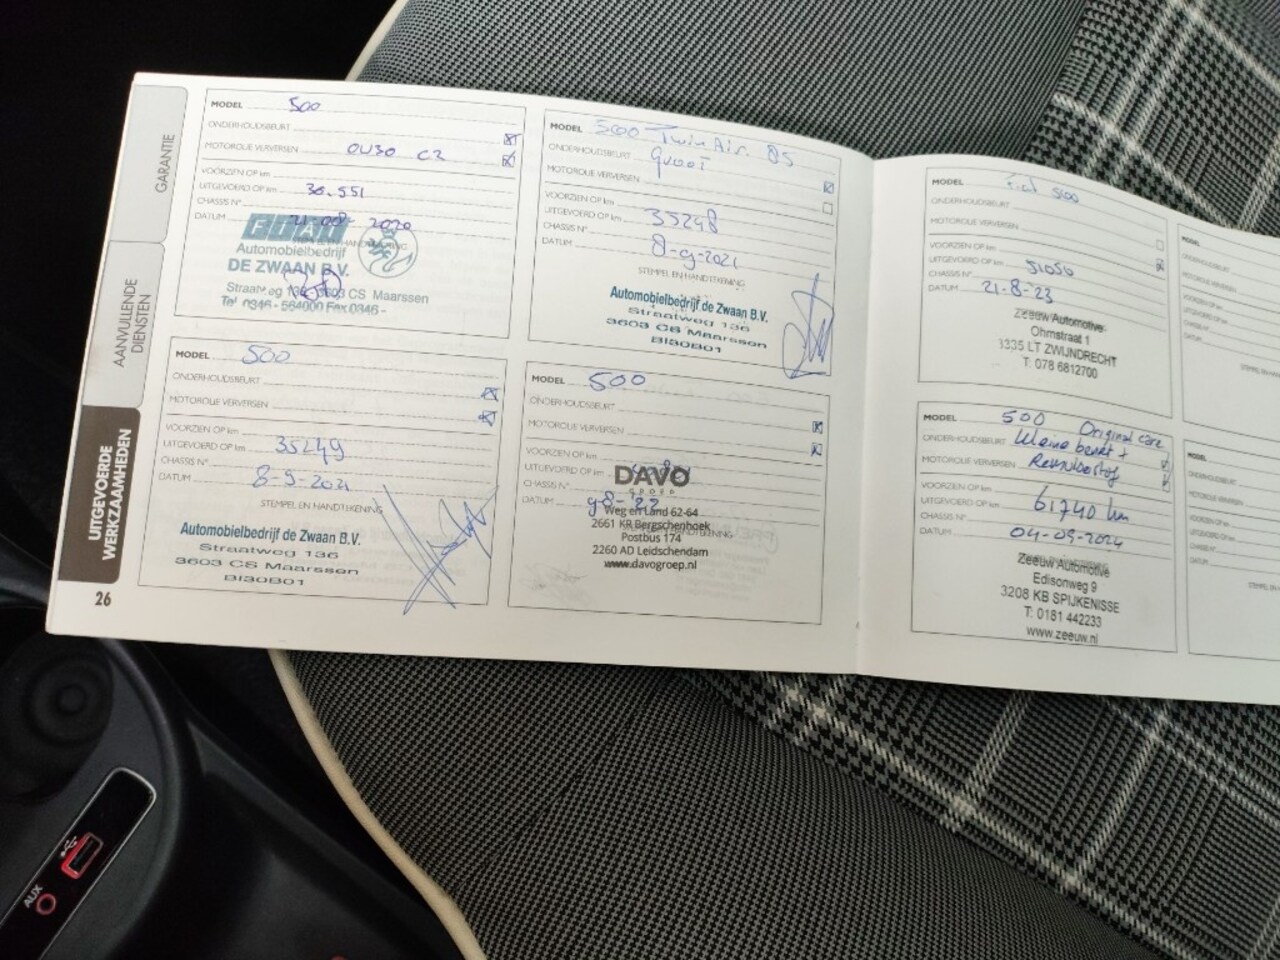 GARANTIE
AANVULLENDE
DIENSTEN
UITGEVOERDE
WERKZAAMHEDEN
26
MODEL 500
ONDERHOUDSBEURT
MOTOROLIE VERVERSEN 0W30 C2
VOORZIEN OP km
UITGEVOERD OP km 30.551
CHASSIS N°
DATUM 21-08-2020
FIAT
Automobielbedrijf
DE ZWAAN B.V.
Straatweg 136 - 3603 CS Maarssen
Tel. 0346 - 564000 Fax 0346 -
MODEL 500 TwinAir 85
ONDERHOUDSBEURT groot
MOTOROLIE VERVERSEN
VOORZIEN OP km
UITGEVOERD OP km 35248
CHASSIS N°
DATUM 8-9-2021
STEMPEL EN HANDTEKENING
Automobielbedrijf de Zwaan B.V.
Straatweg 136
3603 CS Maarssen
BI30B01
MODEL 500
ONDERHOUDSBEURT
MOTOROLIE VERVERSEN
VOORZIEN OP km
UITGEVOERD OP km 35249
CHASSIS N°
DATUM 8-9-2021
STEMPEL EN HANDTEKENING
Automobielbedrijf de Zwaan B.V.
Straatweg 136
3603 CS Maarssen
BI30B01
MODEL 500
ONDERHOUDSBEURT
MOTOROLIE VERVERSEN
VOORZIEN OP km
UITGEVOERD OP km
CHASSIS N°
DATUM
DAVO
GROEP
Weg en Land 62-64
2661 KR Bergschenhoek
Postbus 174
2260 AD Leidschendam
www.davogroep.nl
MODEL Fiat 500
ONDERHOUDSBEURT
MOTOROLIE VERVERSEN
VOORZIEN OP km
UITGEVOERD OP km 51050
CHASSIS N°
DATUM 21-8-23
Zeeuw Automotive
Ohmstraat 1
3335 LT ZWIJNDRECHT
T: 078 6812700
MODEL 500 Original care
ONDERHOUDSBEURT Kleine beurt +
MOTOROLIE VERVERSEN Remvloeistof
VOORZIEN OP km
UITGEVOERD OP km 61740 km
CHASSIS N°
DATUM 04-09-2024
Zeeuw Automotive
Edisonweg 9
3208 KB SPIJKENISSE
T: 0181 442233
www.zeeuw.nl
MODEL
MODEL
AUX